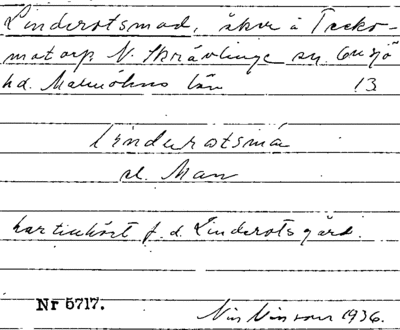 Linderotsmad, åker å Tecko-
matorp N. Skrävlinge sn. Onsjö
hd. Malmöhus län 13
linderotsmá
el. Man
har tillhört f. d. Linderotsgård.
Nr 5717. Nils Nilsson 1936.